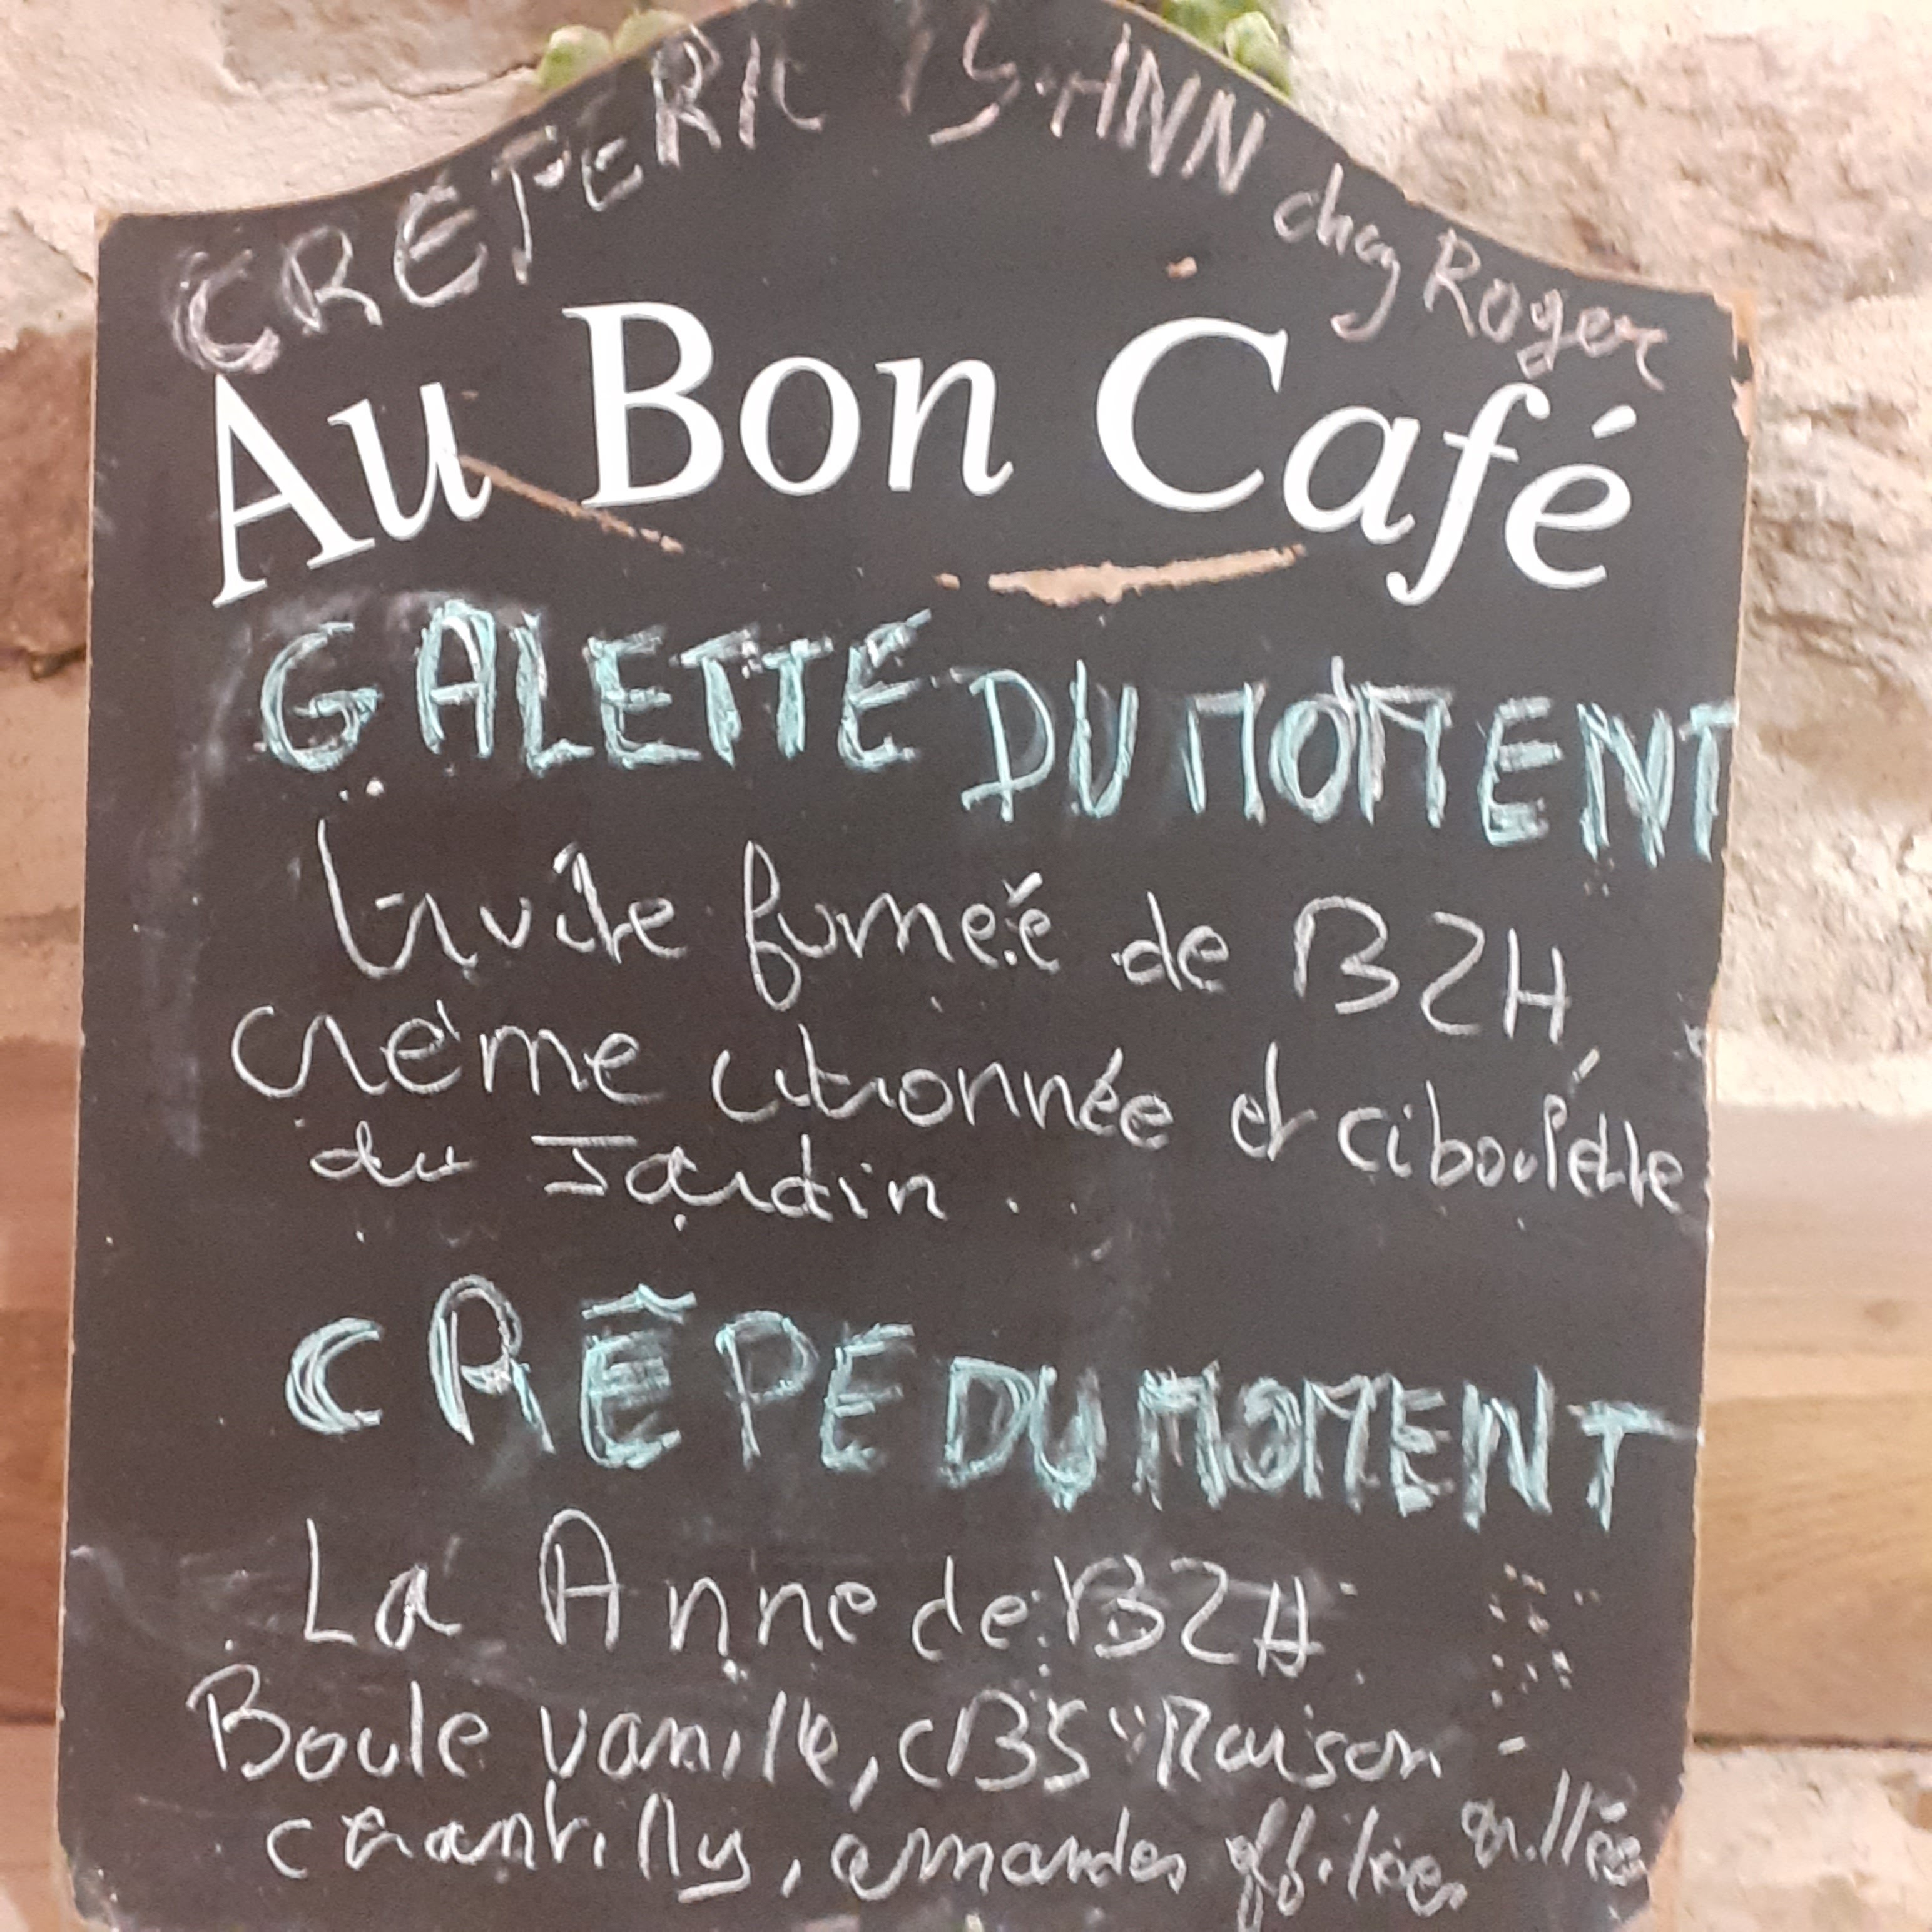 CREPERIE TY ANN chez Roger
Au Bon Café
GALETTE DU MOMENT
truite fumée de BZH,
crème citronnée et ciboulette
du Jardin..
CRÊPE DU MOMENT
La Anne de BZH
Boule vanille, CBS "Maison
chantilly, amandes effilées grillées